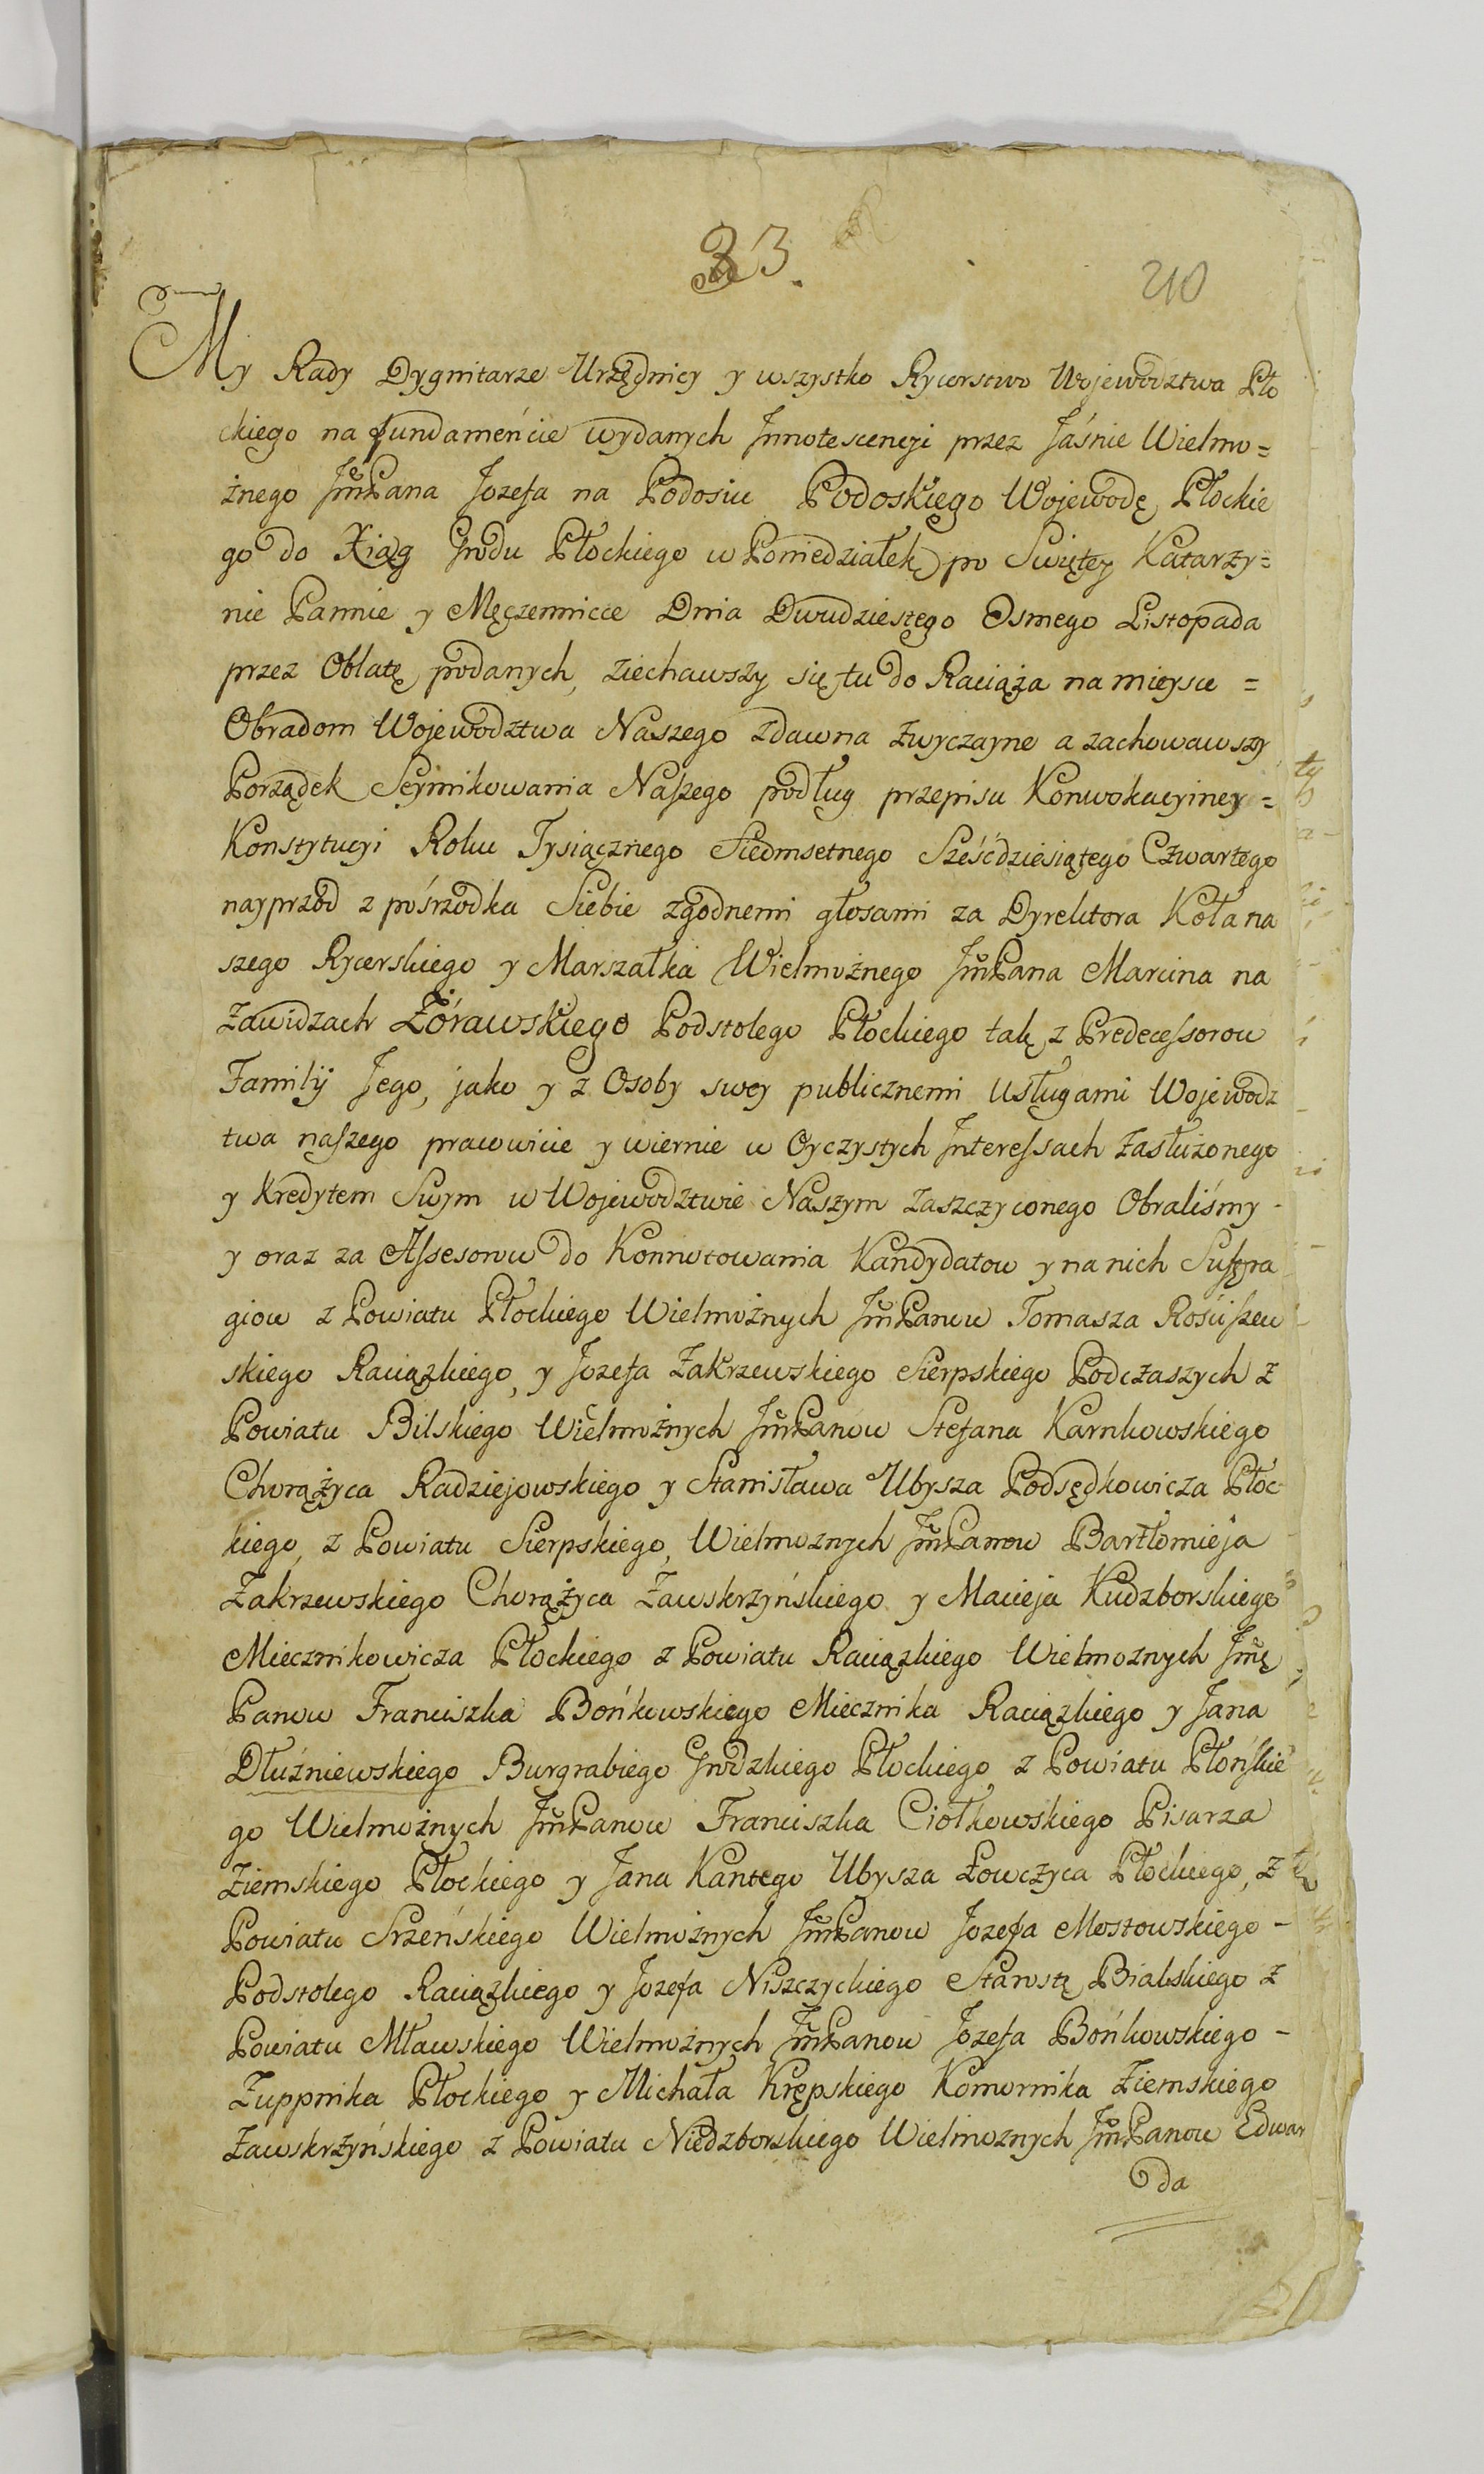 33.
210
My Rady Dygnitarze Urzędnicy y wszystko Rycerstwo Wojewodztwa Pło
ckiego na fundamencie wydanych Innotescencyi przez Jaśnie Wielmo=
żnego JmPana Jozefa na Podosiu Podoskiego Wojewodę Płockie
go do Xiąg Grodu Płockiego w Poniedziałek po Swiętey Katarzy=
nie Pannie y Męczennicce Dnia Dwudziestego Osmego Listopada
przez Oblatę podanych, ziechawszy się tu do Raciąża na mieysce =
Obradom Wojewodztwa Naszego zdawna zwyczayne a zachowawszy
Porządek Seymikowania Naszego podług przepisu Konwokacyiney =
Konstytucyi Roku Tysiącznego Siedmsetnego Sześćdziesiątego Czwartego
nayprzod z pośrzodka Siebie zgodnemi głosami za Dyrektora Koła na
szego Rycerskiego y Marszałka Wielmożnego JmPana Marcina na
Zawidzach Żórawskiego Podstolego Płockiego tak z Predecessorow
Familij Jego, jako y z Osoby swey publicznemi usługami Wojewodz
twa naszego prawowicie y wiernie w Oyczystych Interessach zasłużonego
y Kredytem Swym w Wojewodztwie Naszym zaszczyconego Obraliśmy -
y oraz za Assesorow do Konnotowania Kandydatow y na nich Suffra
giow z Powiatu Płockiego Wielmożnych JmPanow Tomasza Rościszew
skiego Raciązkiego, y Jozefa Zakrzewskiego Sierpskiego Podczaszych z
Powiatu Bilskiego Wielmożnych JmPanow Stefana Karnkowskiego
Chorążyca Radziejowskiego y Stanisława Ubysza Podsędkowicza Płoc
kiego, z Powiatu Sierpskiego, Wielmoznych JmPanow Bartłomieja
Zakrzewskiego Chorążyca Zawskrzyńskiego y Macieja Kudzborskiego
Miecznikowicza Płockiego z Powiatu Raciązkiego Wielmoznych Jmę
Panow Franciszka Bońkowskiego Miecznika Raciązkiego y Jana
Dłuźniewskiego Burgrabiego Grodzkiego Płockiego z Powiatu Płońskie
go Wielmożnych JmPanow Franciszka Ciołkowskiego Pisarza
Ziemskiego Płockiego y Jana Kantego Ubysza Łowczyca Płockiego, z
Powiatu Srzeńskiego Wielmożnych JmPanow Jozefa Mostowskiego -
Podstolego Raciązkiego y Jozefa Niszczyckiego Starostę Bialskiego z
Powiatu Mławskiego Wielmożnych JmPanow Jozefa Bońkowskiego -
Żuppnika Płockiego y Michała Krępskiego Komornika Ziemskiego
Zawskrzyńskiego z Powiatu Niedzborskiego Wielmoznych JmPanow Edwar
da